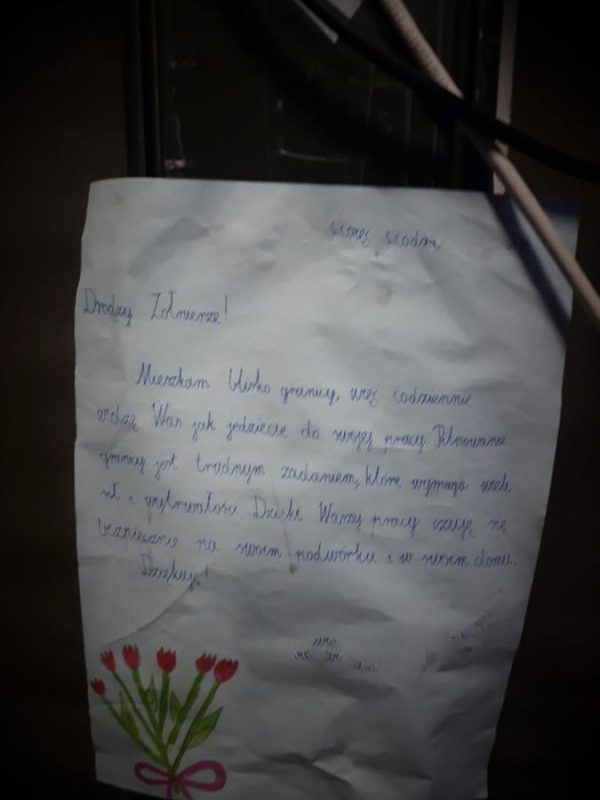 Drodzy Żołnierze!
Mieszkam blisko granicy, więc codziennie
widzę Was jak jedziecie do swojej pracy Pilnowanie
granicy jest trudnym zadaniem, które wymaga wiele
sił i wytrwałości. Dzięki Waszej pracy czuję się
bezpiecznie na swoim podwórku i w swoim domu.
Dziękuję!